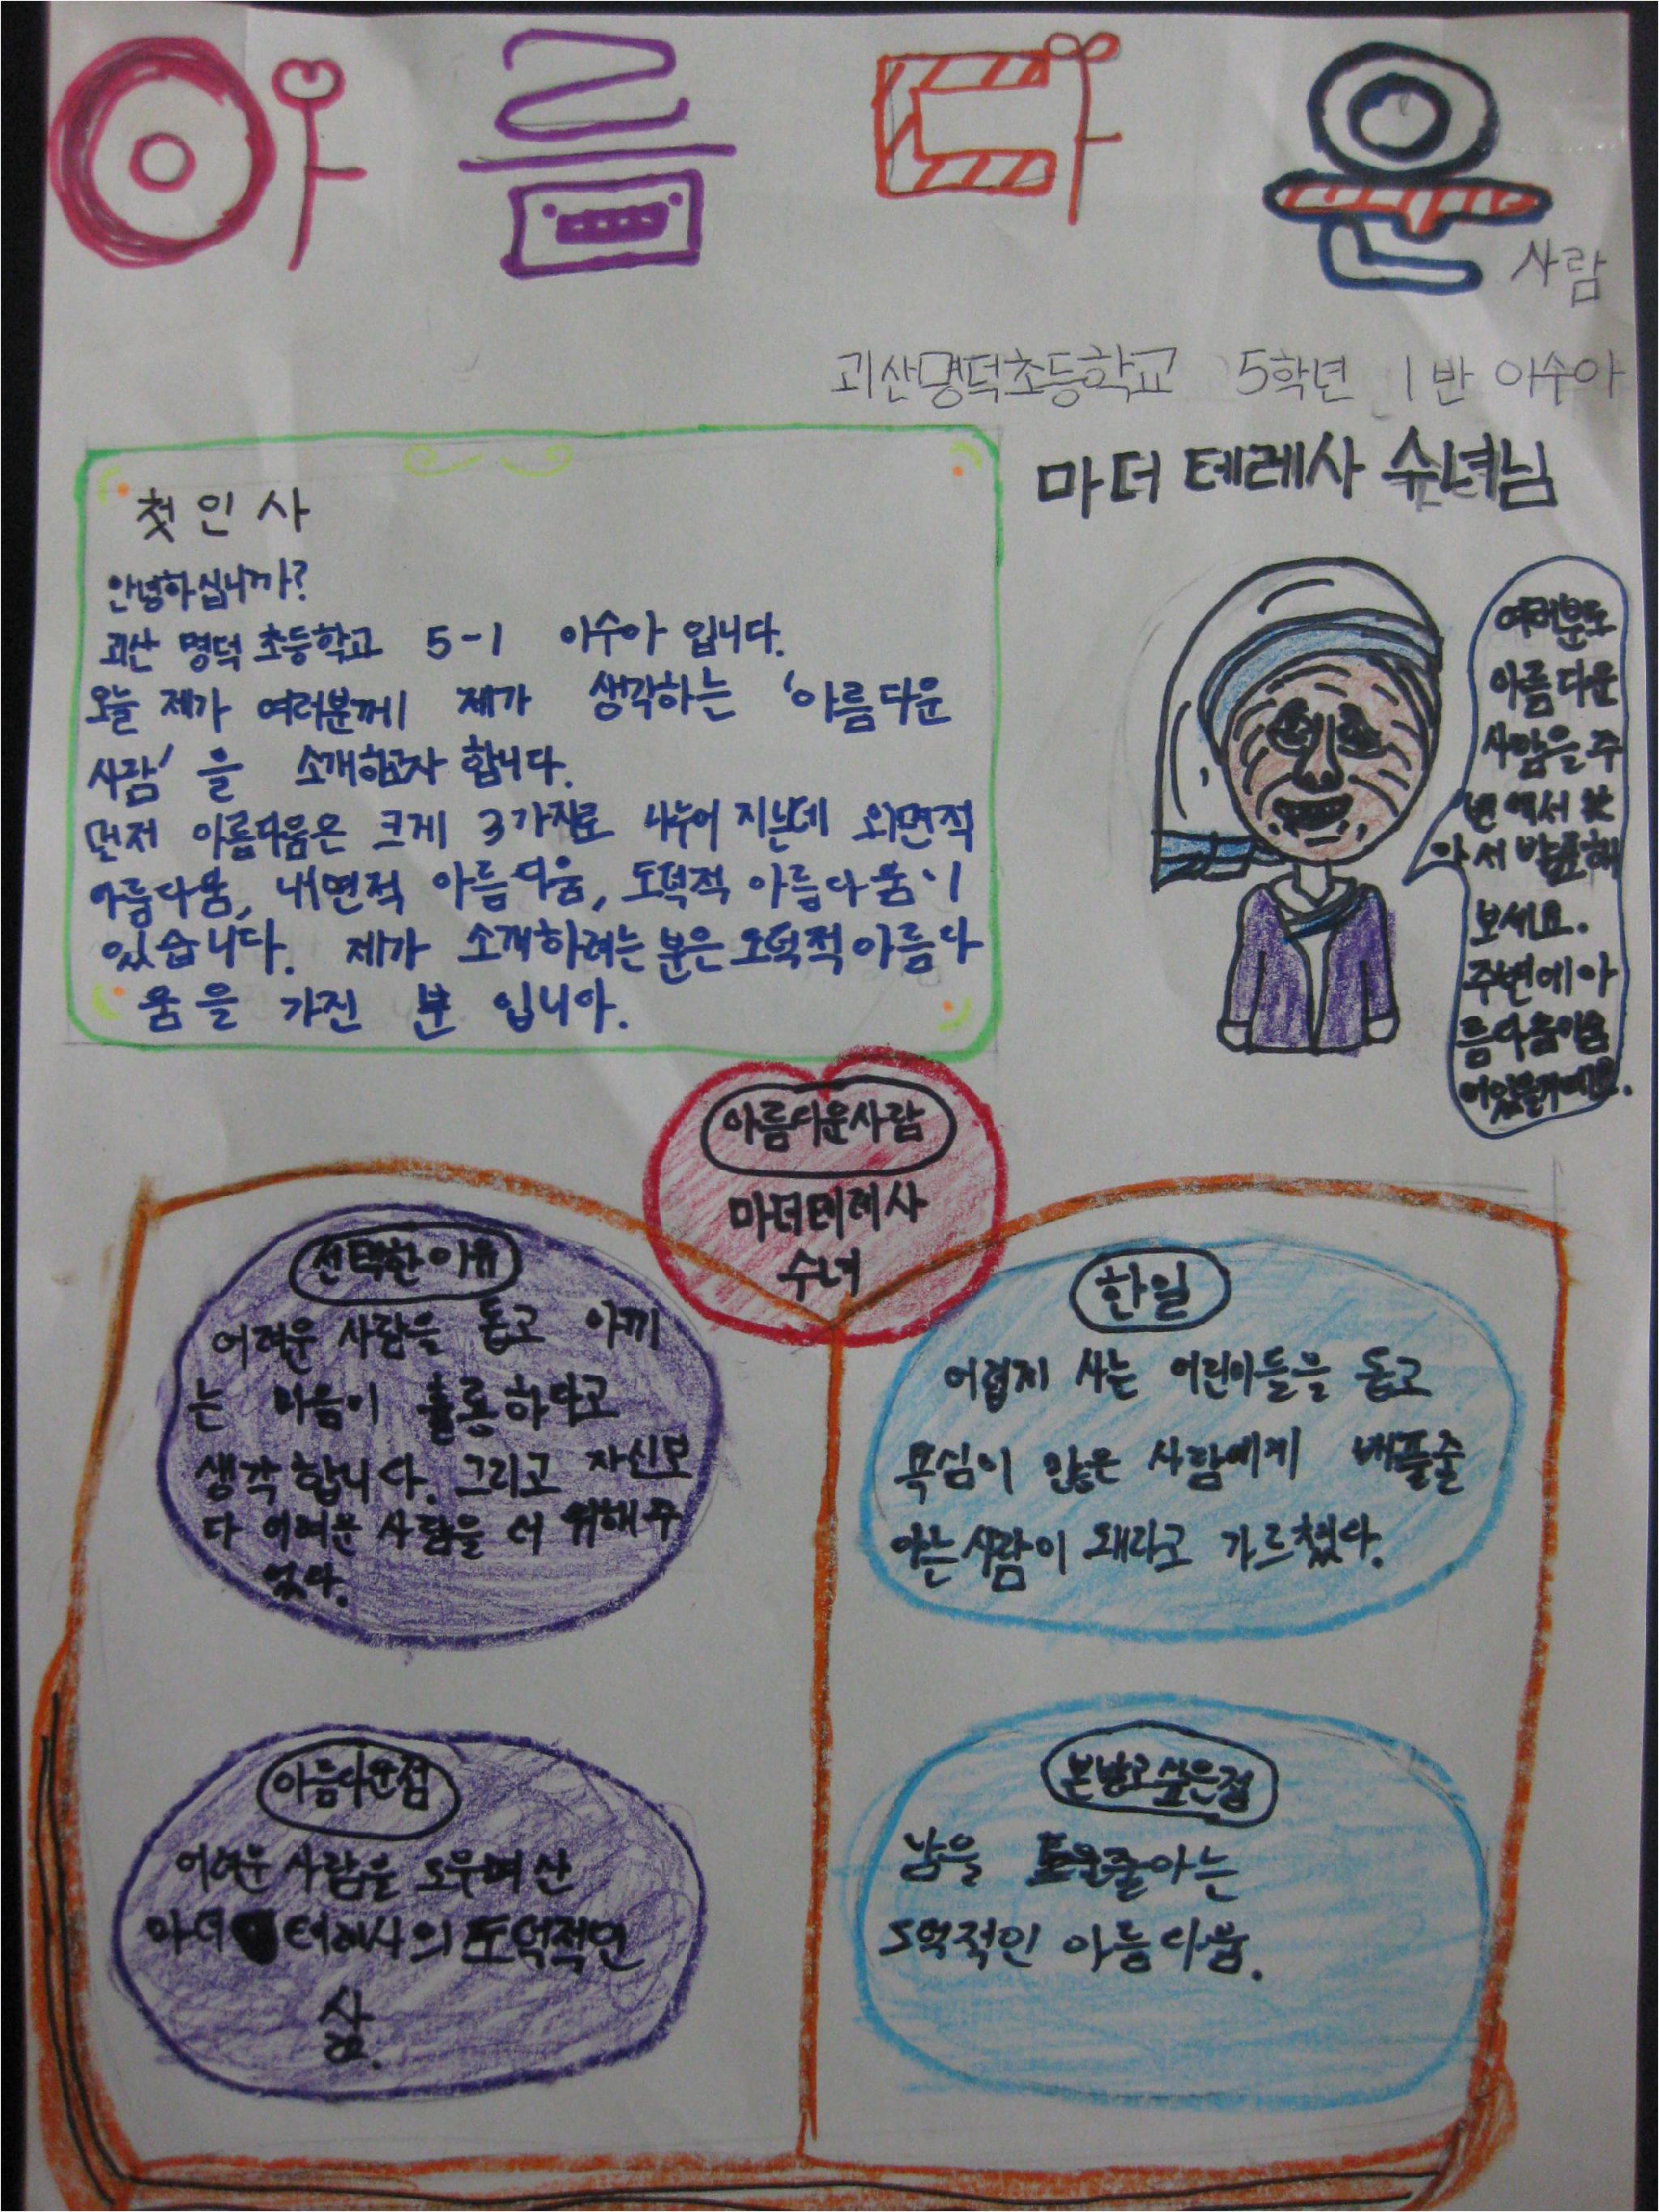 아름다운
사람
괴산명덕초등학교 5학년 1반 이수아
마더 테레사 수녀님
첫인사
안녕하십니까?
괴산 명덕 초등학교 5-1 이수아 입니다.
오늘 제가 여러분께 제가 생각하는 '아름다운
사람'을 소개하고자 합니다.
먼저 아름다움은 크게 3가지로 나누어 지는데 외면적
아름다움, 내면적 아름다움, 도덕적 아름다움이
있습니다. 제가 소개하려는 분은 도덕적 아름다
움을 가진 분 입니다.
여러분도
아름다운
사람을 주
변에서 찾
아서 발표해
보세요.
주변에 아
름다움이 숨
어있을거예요.
아름다운사람
마더테레사
수녀
선택한이유
어려운 사람을 돕고 아끼
는 마음이 훌륭하다고
생각합니다. 그리고 자신보
다 어려운 사람을 더 위해주
었다.
한일
어렵게 사는 어린이들을 돕고
욕심이 많은 사람에게 베플줄
아는 사람이 돼라고 가르쳤다.
아름다운점
어려운 사람을 도우며 산
마더 테레사의 도덕적인
삶.
본받고싶은점
남을 도울줄아는
도덕적인 아름다움.